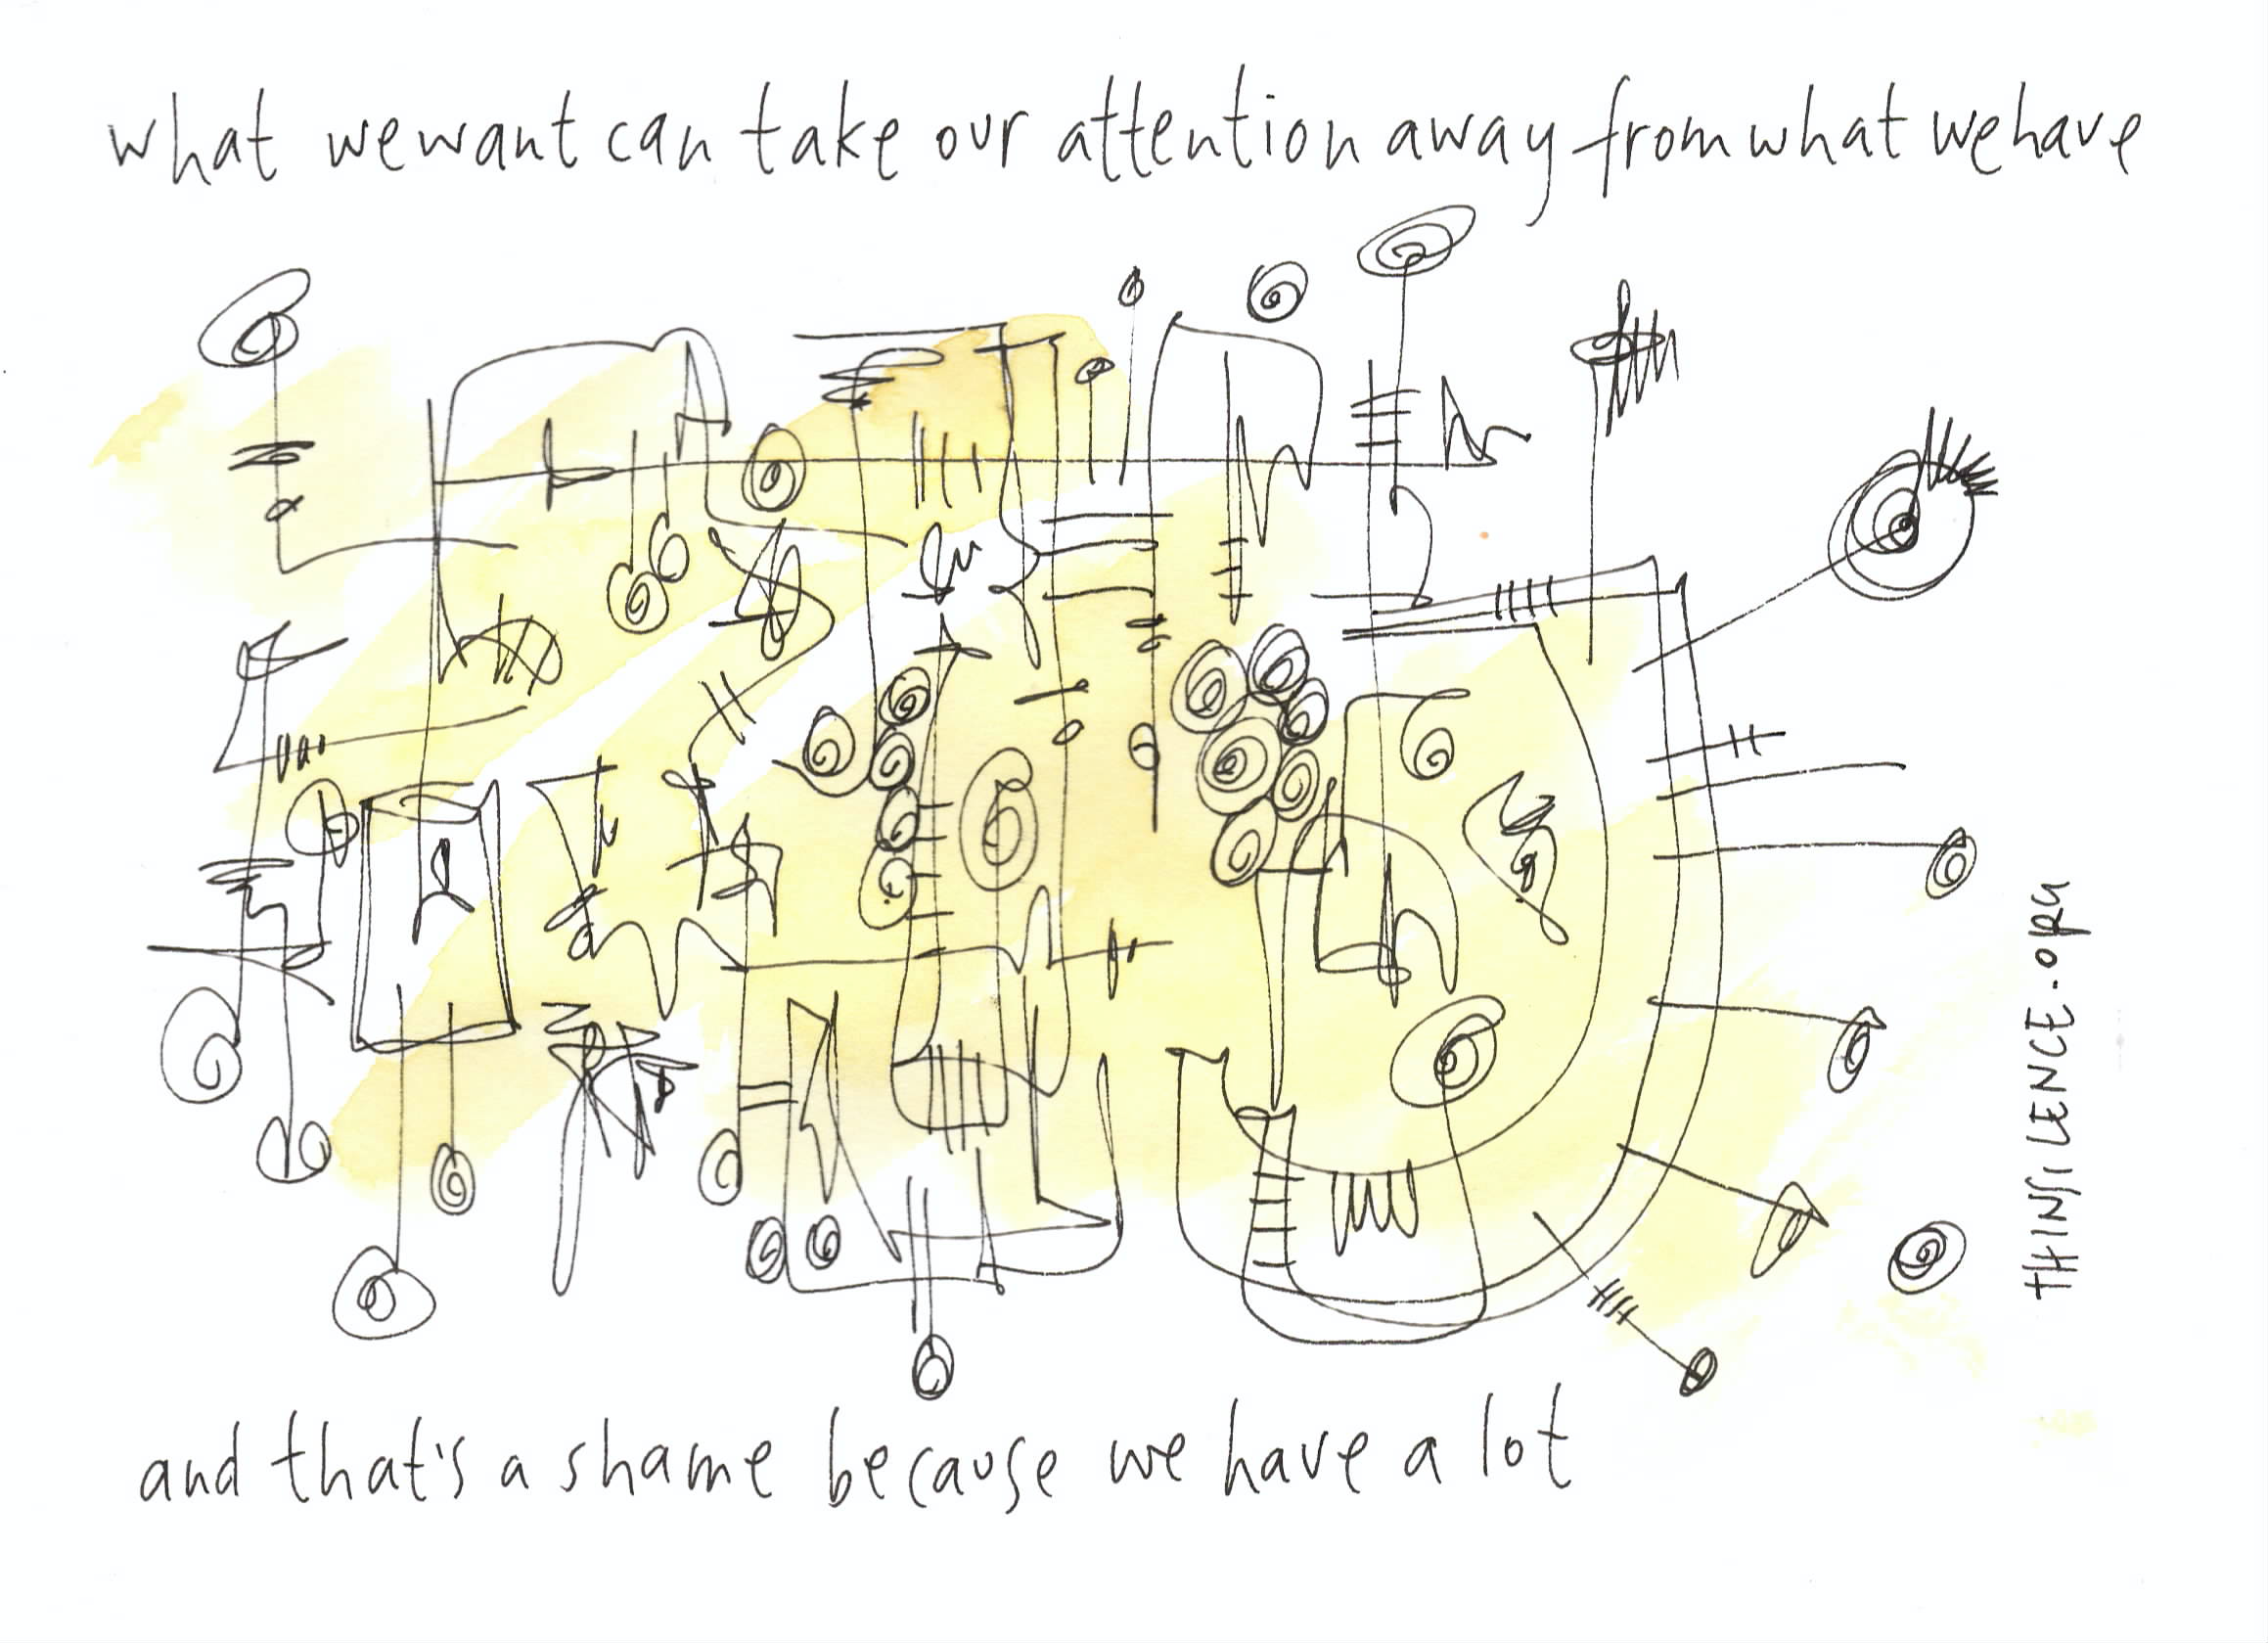 what we want can take our attention away from what we have
and that's a shame because we have a lot
THINSILENCE.org